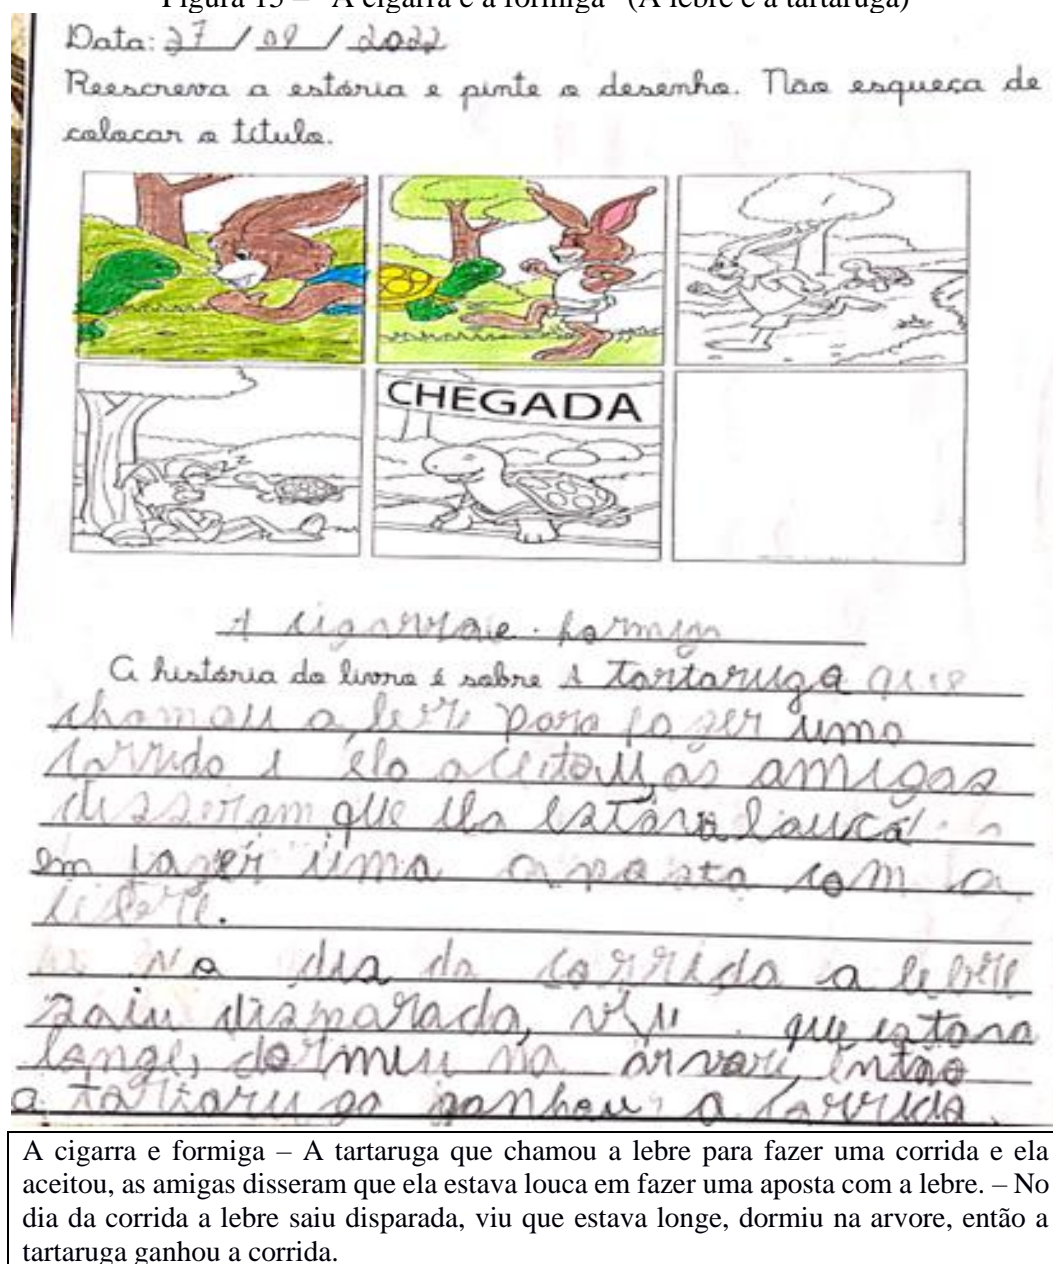 Figura 15 – "A cigarra e a formiga" (A lebre e a tartaruga)
Data: 27 / 09 / 2022
Reescreva a estória e pinte o desenho. Não esqueça de
colocar o título.
CHEGADA
A cigarra e formiga
A história do livro é sobre A tartaruga que
chamou a lebre para fazer uma
corrida e ela aceitou, as amigas
disseram que ela estava louca
em fazer uma aposta com a
lebre.
No dia da corrida a lebre
saiu disparada, viu que estava
longe, dormiu na arvore, então
a tartaruga ganhou a corrida.
A cigarra e formiga – A tartaruga que chamou a lebre para fazer uma corrida e ela
aceitou, as amigas disseram que ela estava louca em fazer uma aposta com a lebre. – No
dia da corrida a lebre saiu disparada, viu que estava longe, dormiu na arvore, então a
tartaruga ganhou a corrida.